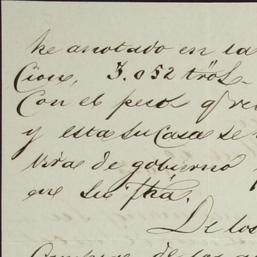 he anotado en la
Cion, 3.052 trōs.
Con el peso qᵉ re
y esta su Casa se
tiva de gobierno
en su Fha.
De los